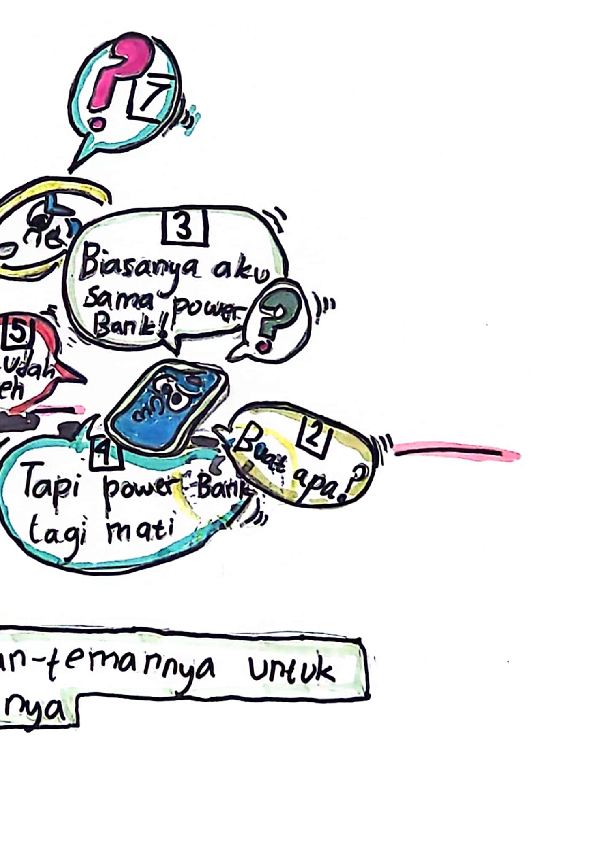 ? 7
3
Biasanya aku
sama power
Bank!
?
5
udah
eh
2
Buat apa?
4
Tapi power Bank
tagi mati
an-temannya untuk
nya